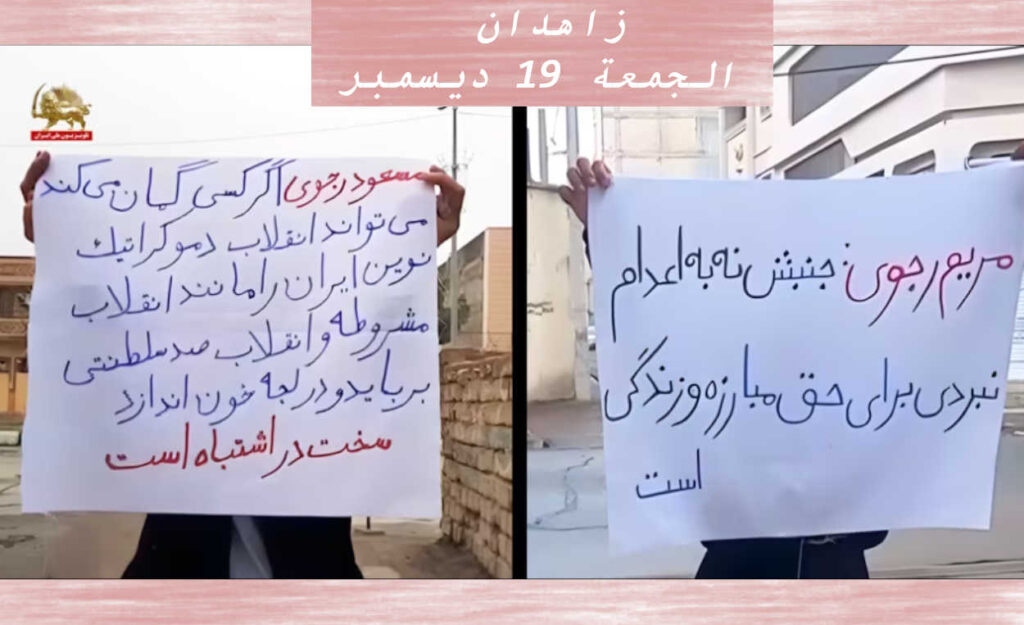 زاهدان
الجمعة 19 ديسمبر
مسعود رجوی اگر کسی گمان می‌کند
می‌تواند انقلاب دموکراتیک
نوین ایران را مانند انقلاب
مشروطه و انقلاب ضد سلطنتی
برباید و در لجه خون اندازد
سخت در اشتباه است
مریم رجوی: جنبش نه به اعدام
نبردی برای حق مبارزه و زندگی
است